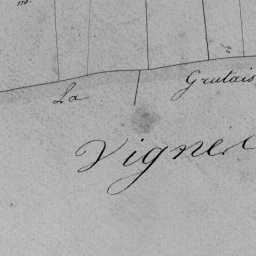 La Grutais
Vigne